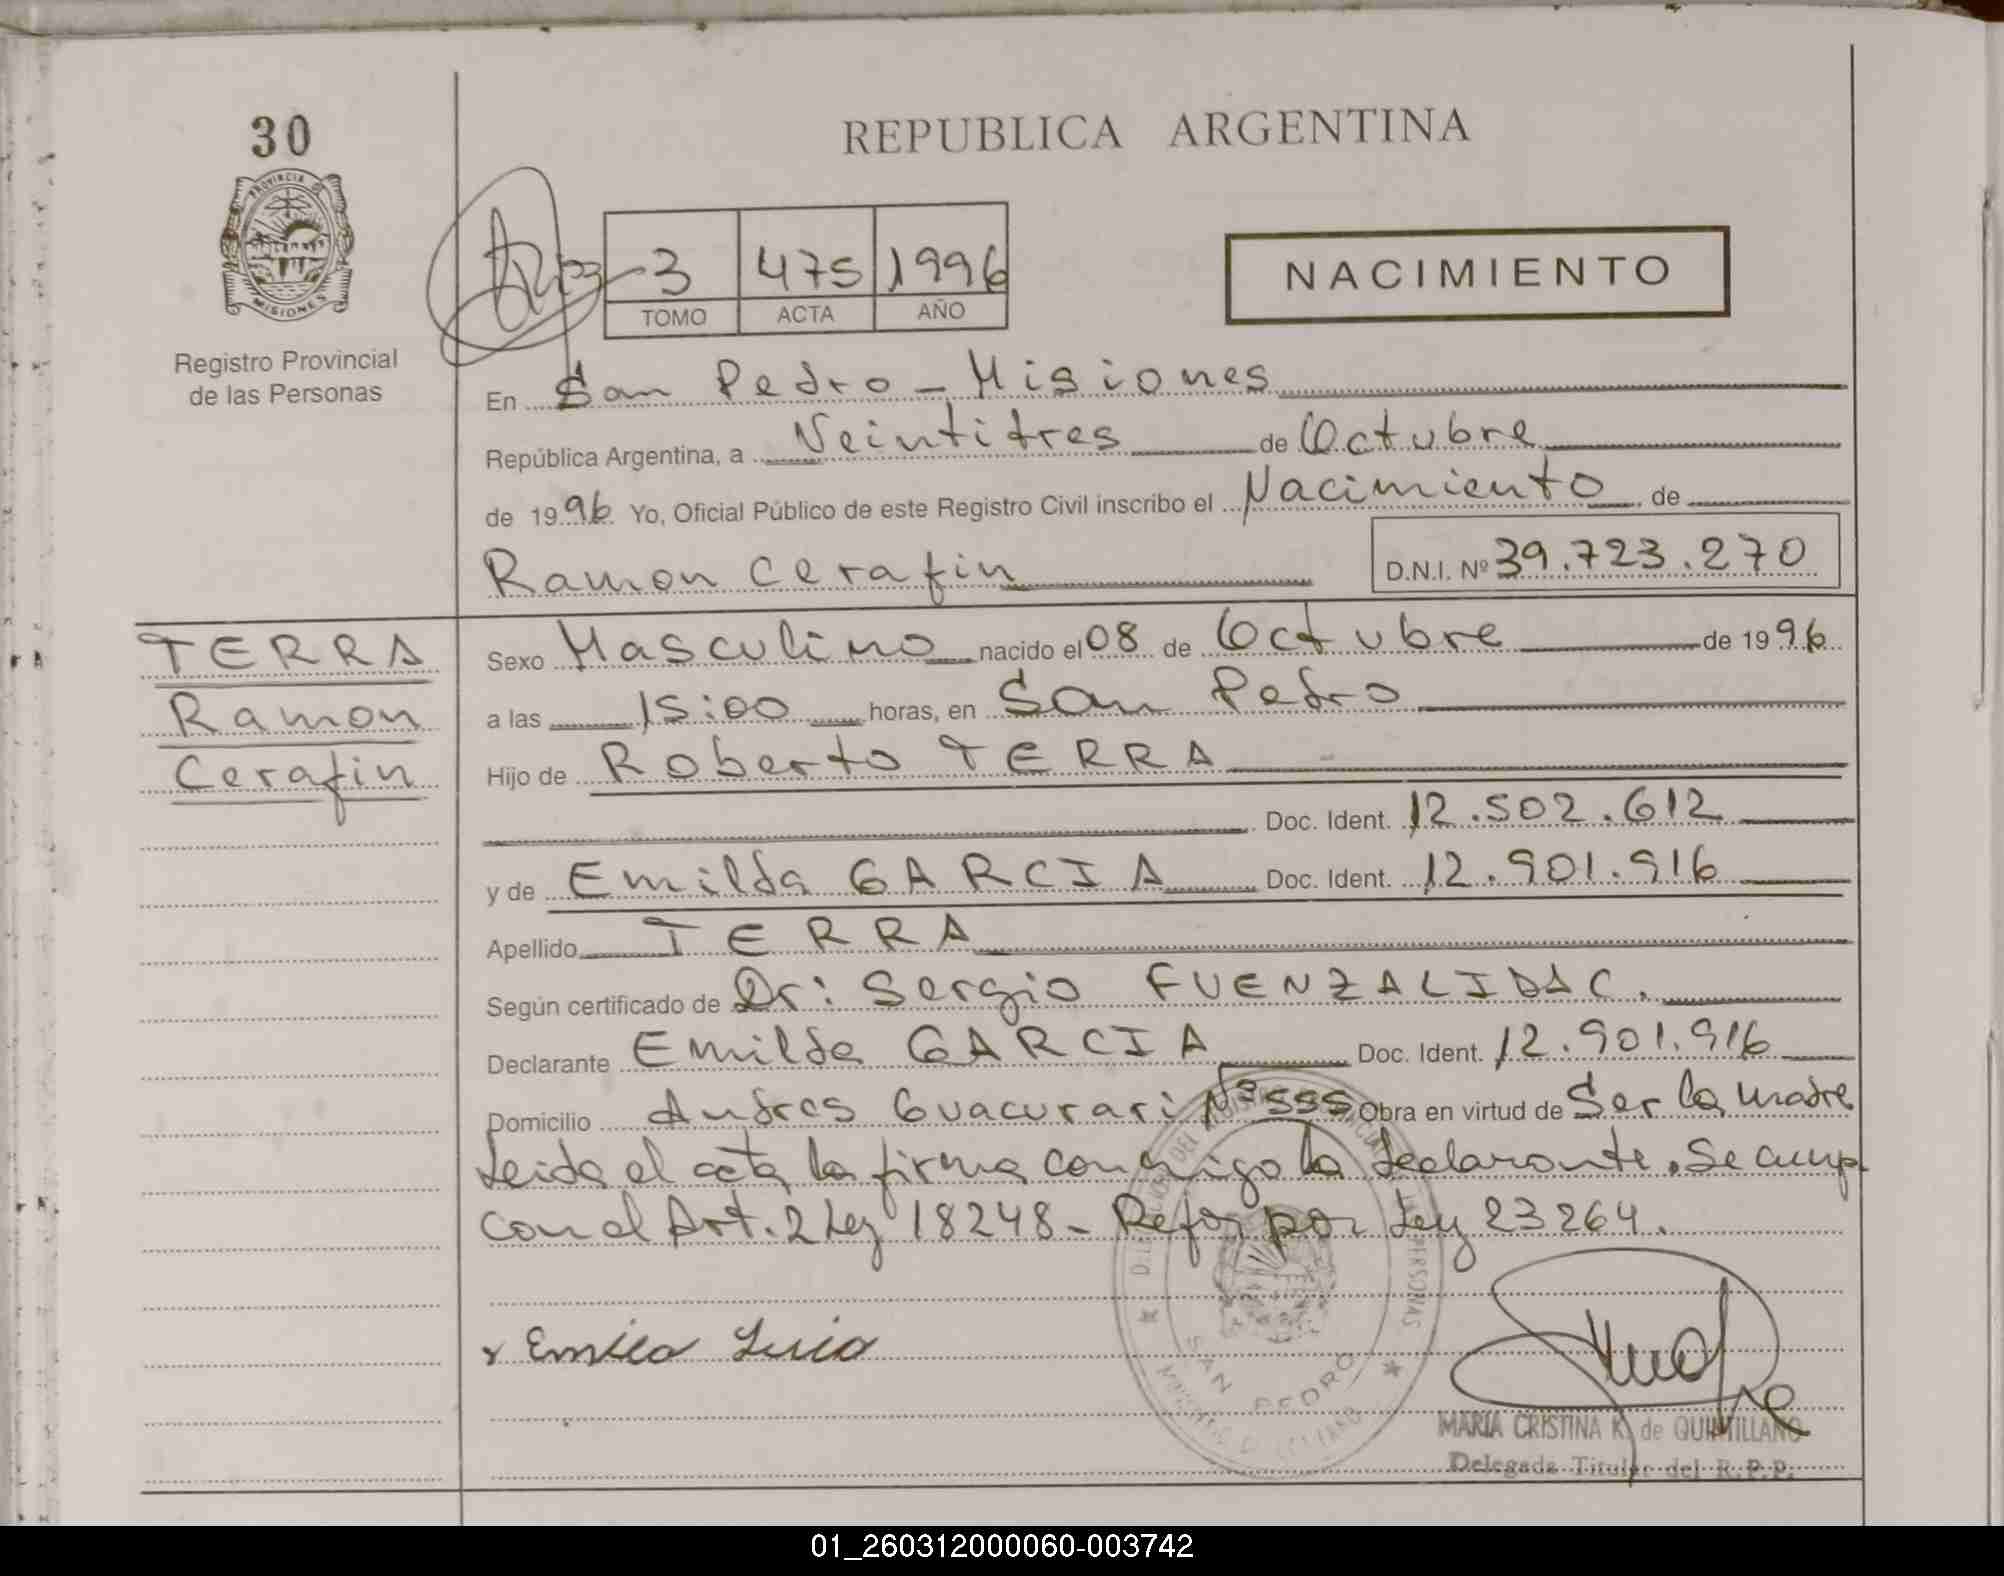 30
REPUBLICA ARGENTINA
PROVINCIA DE MISIONES
3 475 1996
TOMO ACTA AÑO
NACIMIENTO
Registro Provincial
de las Personas
En San Pedro - Misiones
República Argentina, a Veintitres de Octubre
de 1996 Yo, Oficial Público de este Registro Civil inscribo el Nacimiento de
Ramon Cerafin D.N.I. Nº 39.723.270
TERRA
Ramon
Cerafin
Sexo Masculino nacido el 08 de Octubre de 1996
a las 15:00 horas, en San Pedro
Hijo de Roberto TERRA
Doc. Ident. 12.502.612
y de Emilda GARCIA Doc. Ident. 12.901.916
Apellido TERRA
Según certificado de Dr: Sergio FUENZALIDA C.
Declarante Emilda GARCIA Doc. Ident. 12.901.916
Domicilio Andres Guacurari Nº 555 Obra en virtud de Ser la madre
Leida el acta la firma conmigo la declarante. Se cump
con el Art. 2 Ley 18248 - Refor por Ley 23264.
SAN PEDRO
MARIA CRISTINA K. de QUINTILLANO
Delegada Titular del R.P.P.
01_260312000060-003742